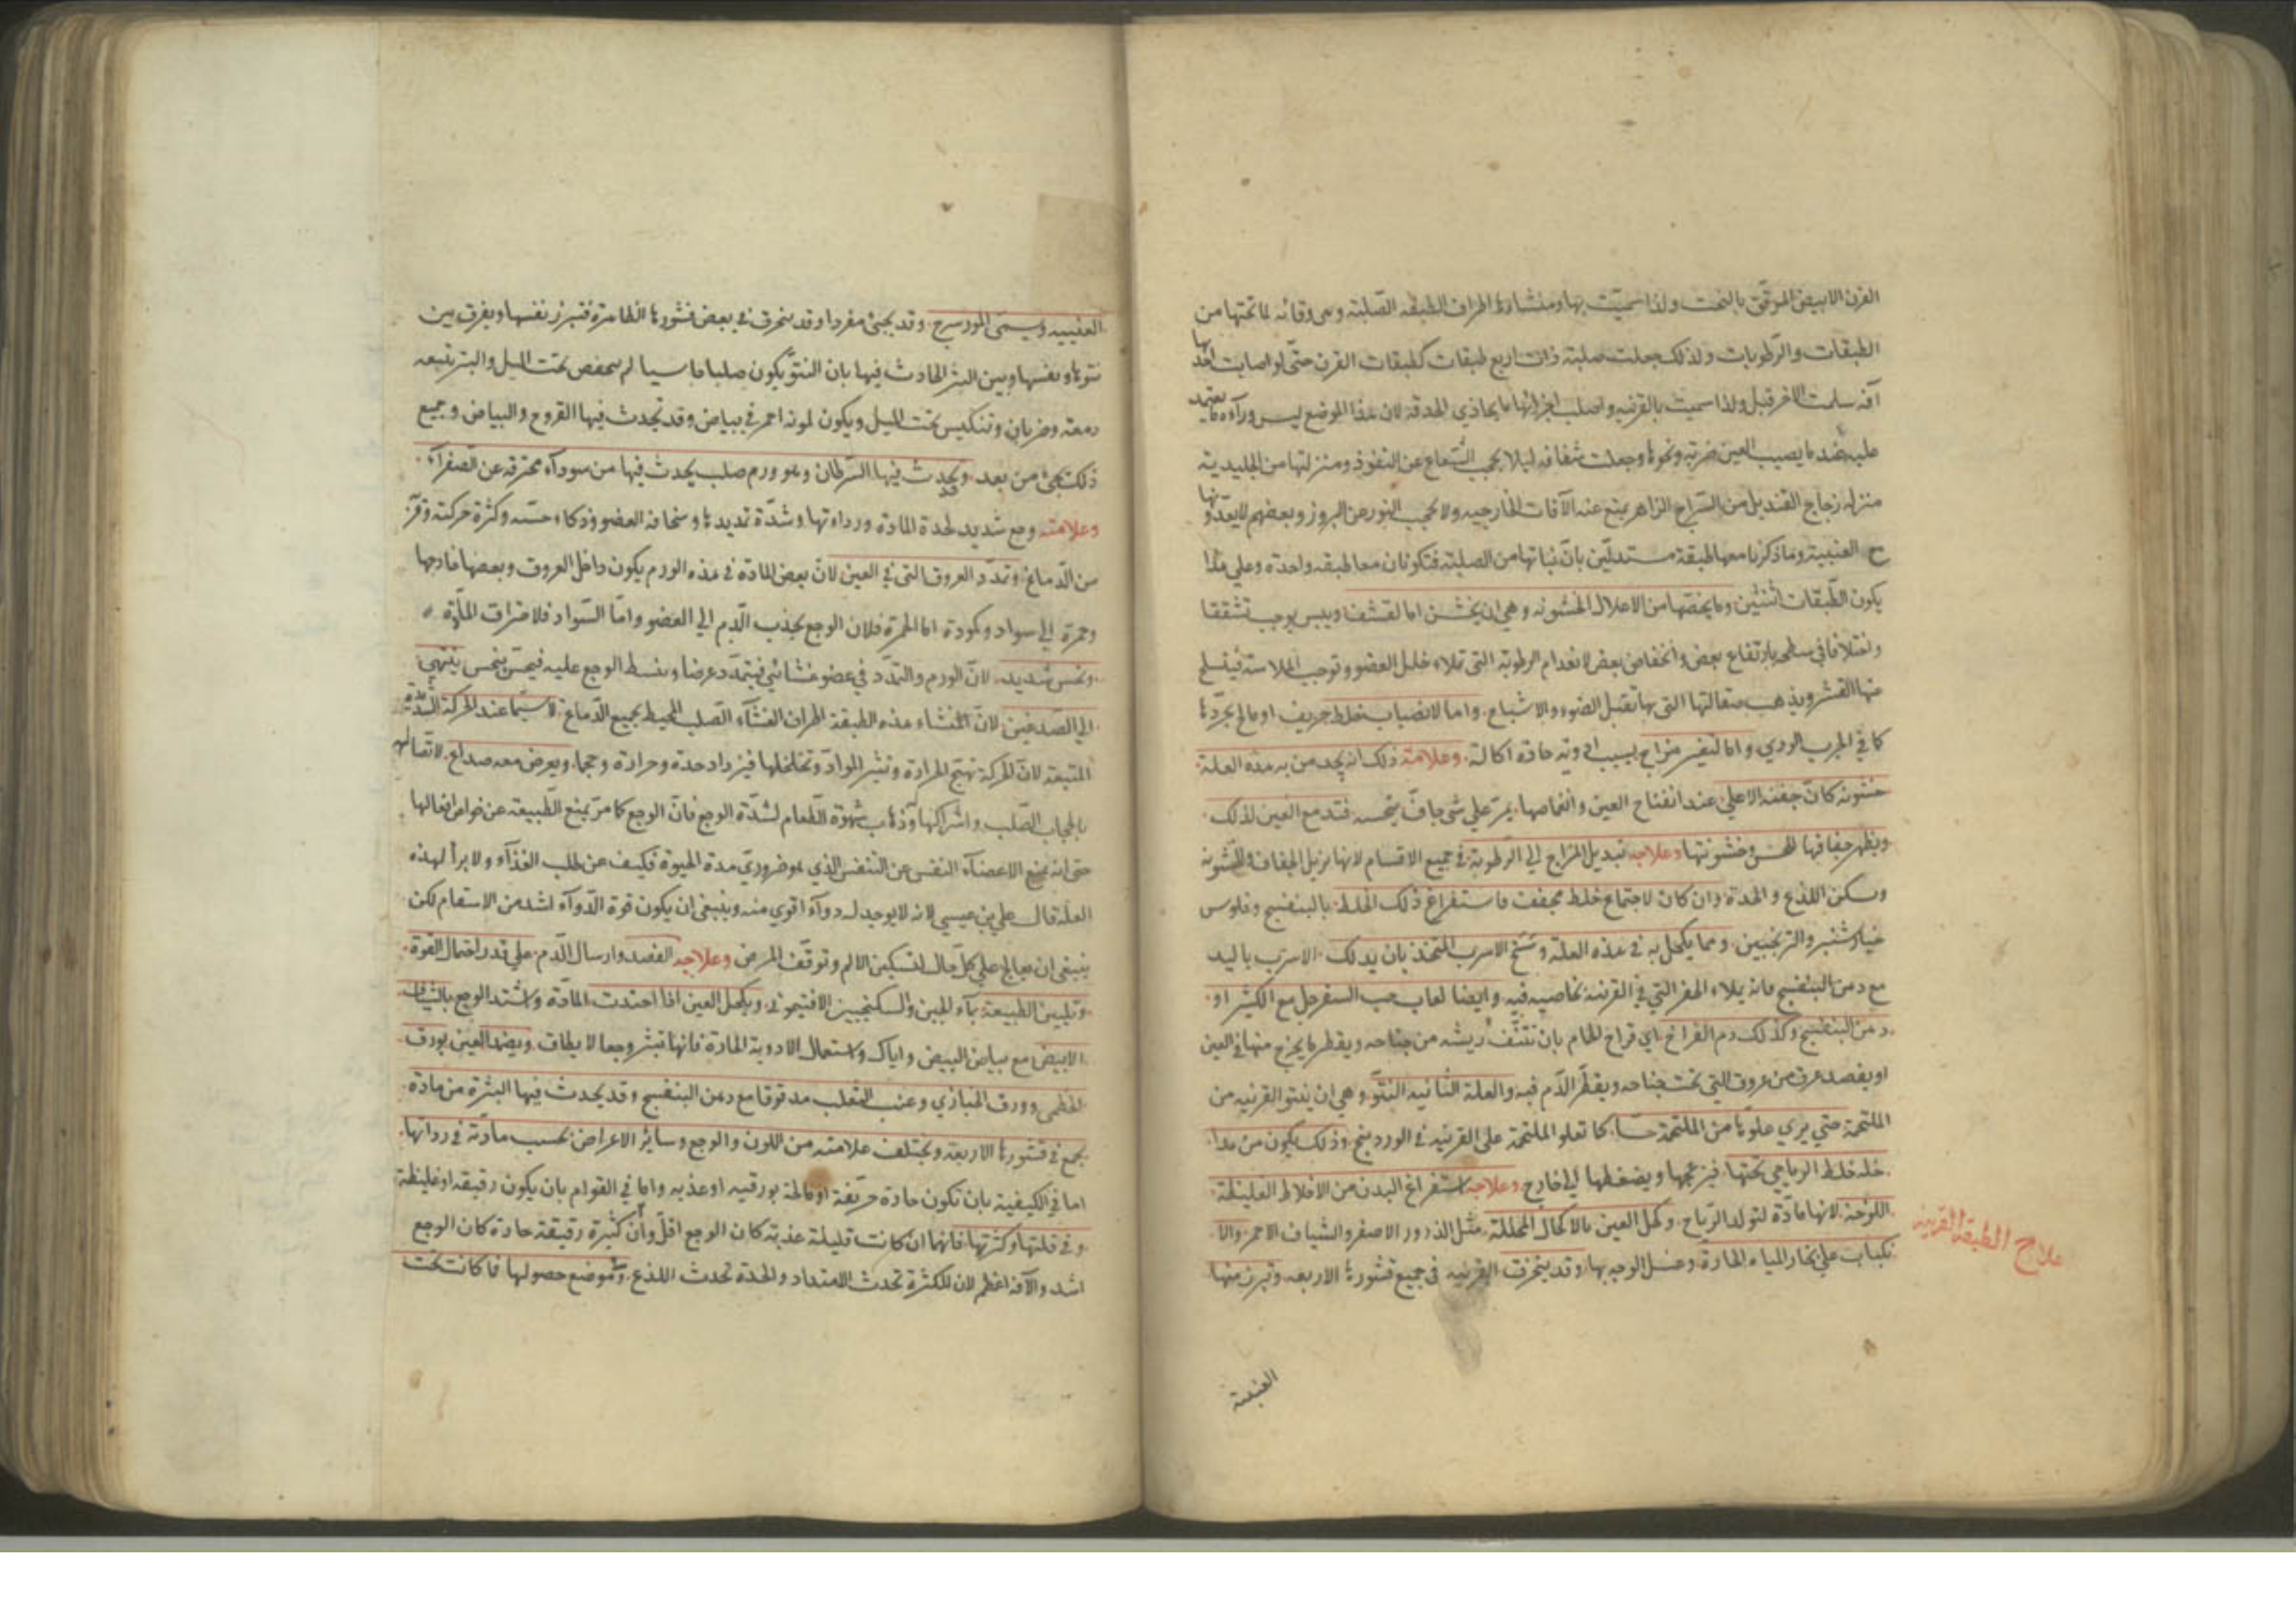 القرن الابيض المرقق بالنحت ولذا سميت بها ومنشاؤها اطراف الطبقه الصلبة وهى وقائه لما تحتها من
الطبقات والرطوبات ولذلك جعلت صلبة ذات اربع طبقات كطبقات القرن حتى لو اصابت احديها
آفة سلمت الاخر قيل ولذا سميت بالقرنيه واصلب اجزائها ما يحاذي الحدقة لان هذا الموضع ليس وراءه ما يعتمد
عليه عند ما يصيب العين ضربة ونحوها وجعلت شفافه ليلا يحجب الشعاع عن النفوذ ومنزلتها من الجليدية
منزلة زجاج القنديل من السراج الزاهر يمنع عنه الآفات الخارجيه ولا يحجب النور عن البروز وبعضهم لا يعدونها
مع العنبية وما ذكرنا معها طبقة مستدلين بان نباتها من الصلبة فتكونان معا طبقه واحدة وعلي هذا
يكون الطبقات اثنتين وما يختصها من الاعلال الخشونه وهى ان يخشن اما لقشف ويبس يوجب تشققا
واختلافا في سطحها بارتفاع بعض وانخفاض بعض لانعدام الرطوبة التى تملاء خلل العضو وتوجب الملاسة فينسلخ
عنها القشر ويذهب صقالتها التى بها تقبل الضوء والاشباح واما لانصباب خلط حريف او مالح يجردها
كما في الجرب الردي واما لتغير مزاج بسبب ادوية حادة اكالة وعلامة ذلك انه يجد من به هذه العلة
خشونه كان جفنه الاعلى عند انفتاح العين وانغماضها يمر على شى جاف يخسه فتدمع العين لذلك
ويظهر جفافها للحس وخشونتها وعلاجه تبديل المزاج الى الرطوبة في جميع الاقسام لانها يزيل الجفاف والخشونة
ويسكن اللذع والحدة وان كان لاجتماع خلط مجفف فاستفراغ ذلك الخلط بالبنفسج وفلوس
خيار شنبر والترنجبين ومما يكحل به في هذه العلة وسخ الاسرب المتخذ بان يدلك الاسرب باليد
مع دهن البنفسج فانه يملاء الحفر التي في القرنية بخاصيه فيه وايضا لعاب حب السفرجل مع الكثيرا و
دهن البنفسج وكذلك دم الفراخ اي فراخ الحمام بان تنتف ريشه من جناحه ويقطر ما يخرج منها في العين
او يفصد عرق من عروق التى تحت جناحه ويقطر الدم فيه والعلة الثانيه النتو وهي ان ينتو القرنيه من
الملتحمة حتى يري علوها من الملتحمة حسا كما تعلو الملتحمة على القرنيه في الوردينج وذلك يكون من مدا
خله خلط الرياحي تحتها فيزعجها ويضغطها الى خارج وعلاجه استفراغ البدن من الاخلاط الغليظة
اللزجة لانها مادة لتولد الرياح وكحل العين بالاكحال المحللة مثل الذرور الاصفر والشياف الاحمر والا
نكباب على بخار المياه الحارة وغسل الوجه بها وقد ينخرق القرنيه في جميع قشورها الاربعه وتبرز منها
علاج الطبقة القرنيه
العنبية
العنبيه ويسمى المورسرج وقد يجئ مفردا وقد ينخرق في بعض قشورها الظاهرة فتبرز نفسها ويفرق بين
نتوها ونفسها وبين البثر الحادث فيها بان النتو يكون صلبا جاسيا لم ينخفض تحت الميل والبثر يتبعه
دمعة وضربان وتنكبس تحت الميل ويكون لونه احمر في بياض وقد تحدث فيها القروح والبياض وجميع
ذلك يجئ من بعد وقد يحدث فيها السرطان وهو ورم صلب يحدث فيها من سوداء محترقه عن الصفراء
وعلامته وجع شديد لحدة المادة ورداءتها وشدة تمديدها وسخافة العضو وذكاء حسه وكثرة حركته وقربه
من الدماغ وتمدد العروق التى في العين لان بعض المادة في هذه الورم يكون داخل العروق وبعضها خارجها
وحمرة الى سواد وكمودة اما الحمرة فلان الوجع يجذب الدم الى العضو واما السواد فلاحتراق المادة
ونخس شديد لان الورم والتمدد في عضو غشائي فيتمدد عرضا وينبسط الوجع عليه فيحس بنخس ينتهي
الى الصدغين لان المنشاء هذه الطبقة اطراف الغشاء الصلب المحيط بجميع الدماغ لا سيما عند الحركة الشديدة
المتعبة لان الحركة تهيج الحرارة وتثير المواد وتخلخلها فيزداد حدة وحرارة وحجما ويعرض معه صداع لاتصالها
بالحجاب الصلب واشتراكها وذهاب شهوة الطعام لشدة الوجع فان الوجع كما مر يمنع الطبيعة عن خواص افعالها
حتى انه يمنع الاعضاء النفس عن التنفس الذي هو ضروري مدة الحيوة فكيف عن طلب الغذاء ولا برأ لهذه
العلة قال علي بن عيسي لانه لا يوجد له دواء اقوي منه وينبغى ان يكون قوة الدواء اشد من الاسقام لكن
ينبغي ان يعالج على كل حال لتسكين الالم وتوقف المرض وعلاجه الفصد وارسال الدم على قدر احتمال القوة
وتليين الطبيعة بماء الجبن والسكنجبين الافتيموني ويكحل العين اذا احتدت المادة واشتد الوجع بالشياف
الابيض مع بياض البيض واياك واستعمال الادوية الحارة فانها تثير وجعا لا يطاق ويضمد العين بورق
الخطمى وورق الخبازي وعنب الثعلب مدقوقا مع دهن البنفسج وقد يحدث فيها البثرة من مادة
يجمع في قشورها الاربعة ويختلف علامته من اللون والوجع وسائر الاعراض بحسب مادته في رداءتها
اما في الكيفية بان تكون حادة حريفة او مالحة بورقيه او عذبه واما في القوام بان يكون رقيقه او غليظة
وفي قلتها وكثرتها فانها ان كانت قليلة عذبة كان الوجع اقل وان كثيرة رقيقة حادة كان الوجع
اشد والآفة اعظم لان للكثرة تحدث الامتداد والحدة تحدث اللذع وموضع حصولها فما كانت تحت